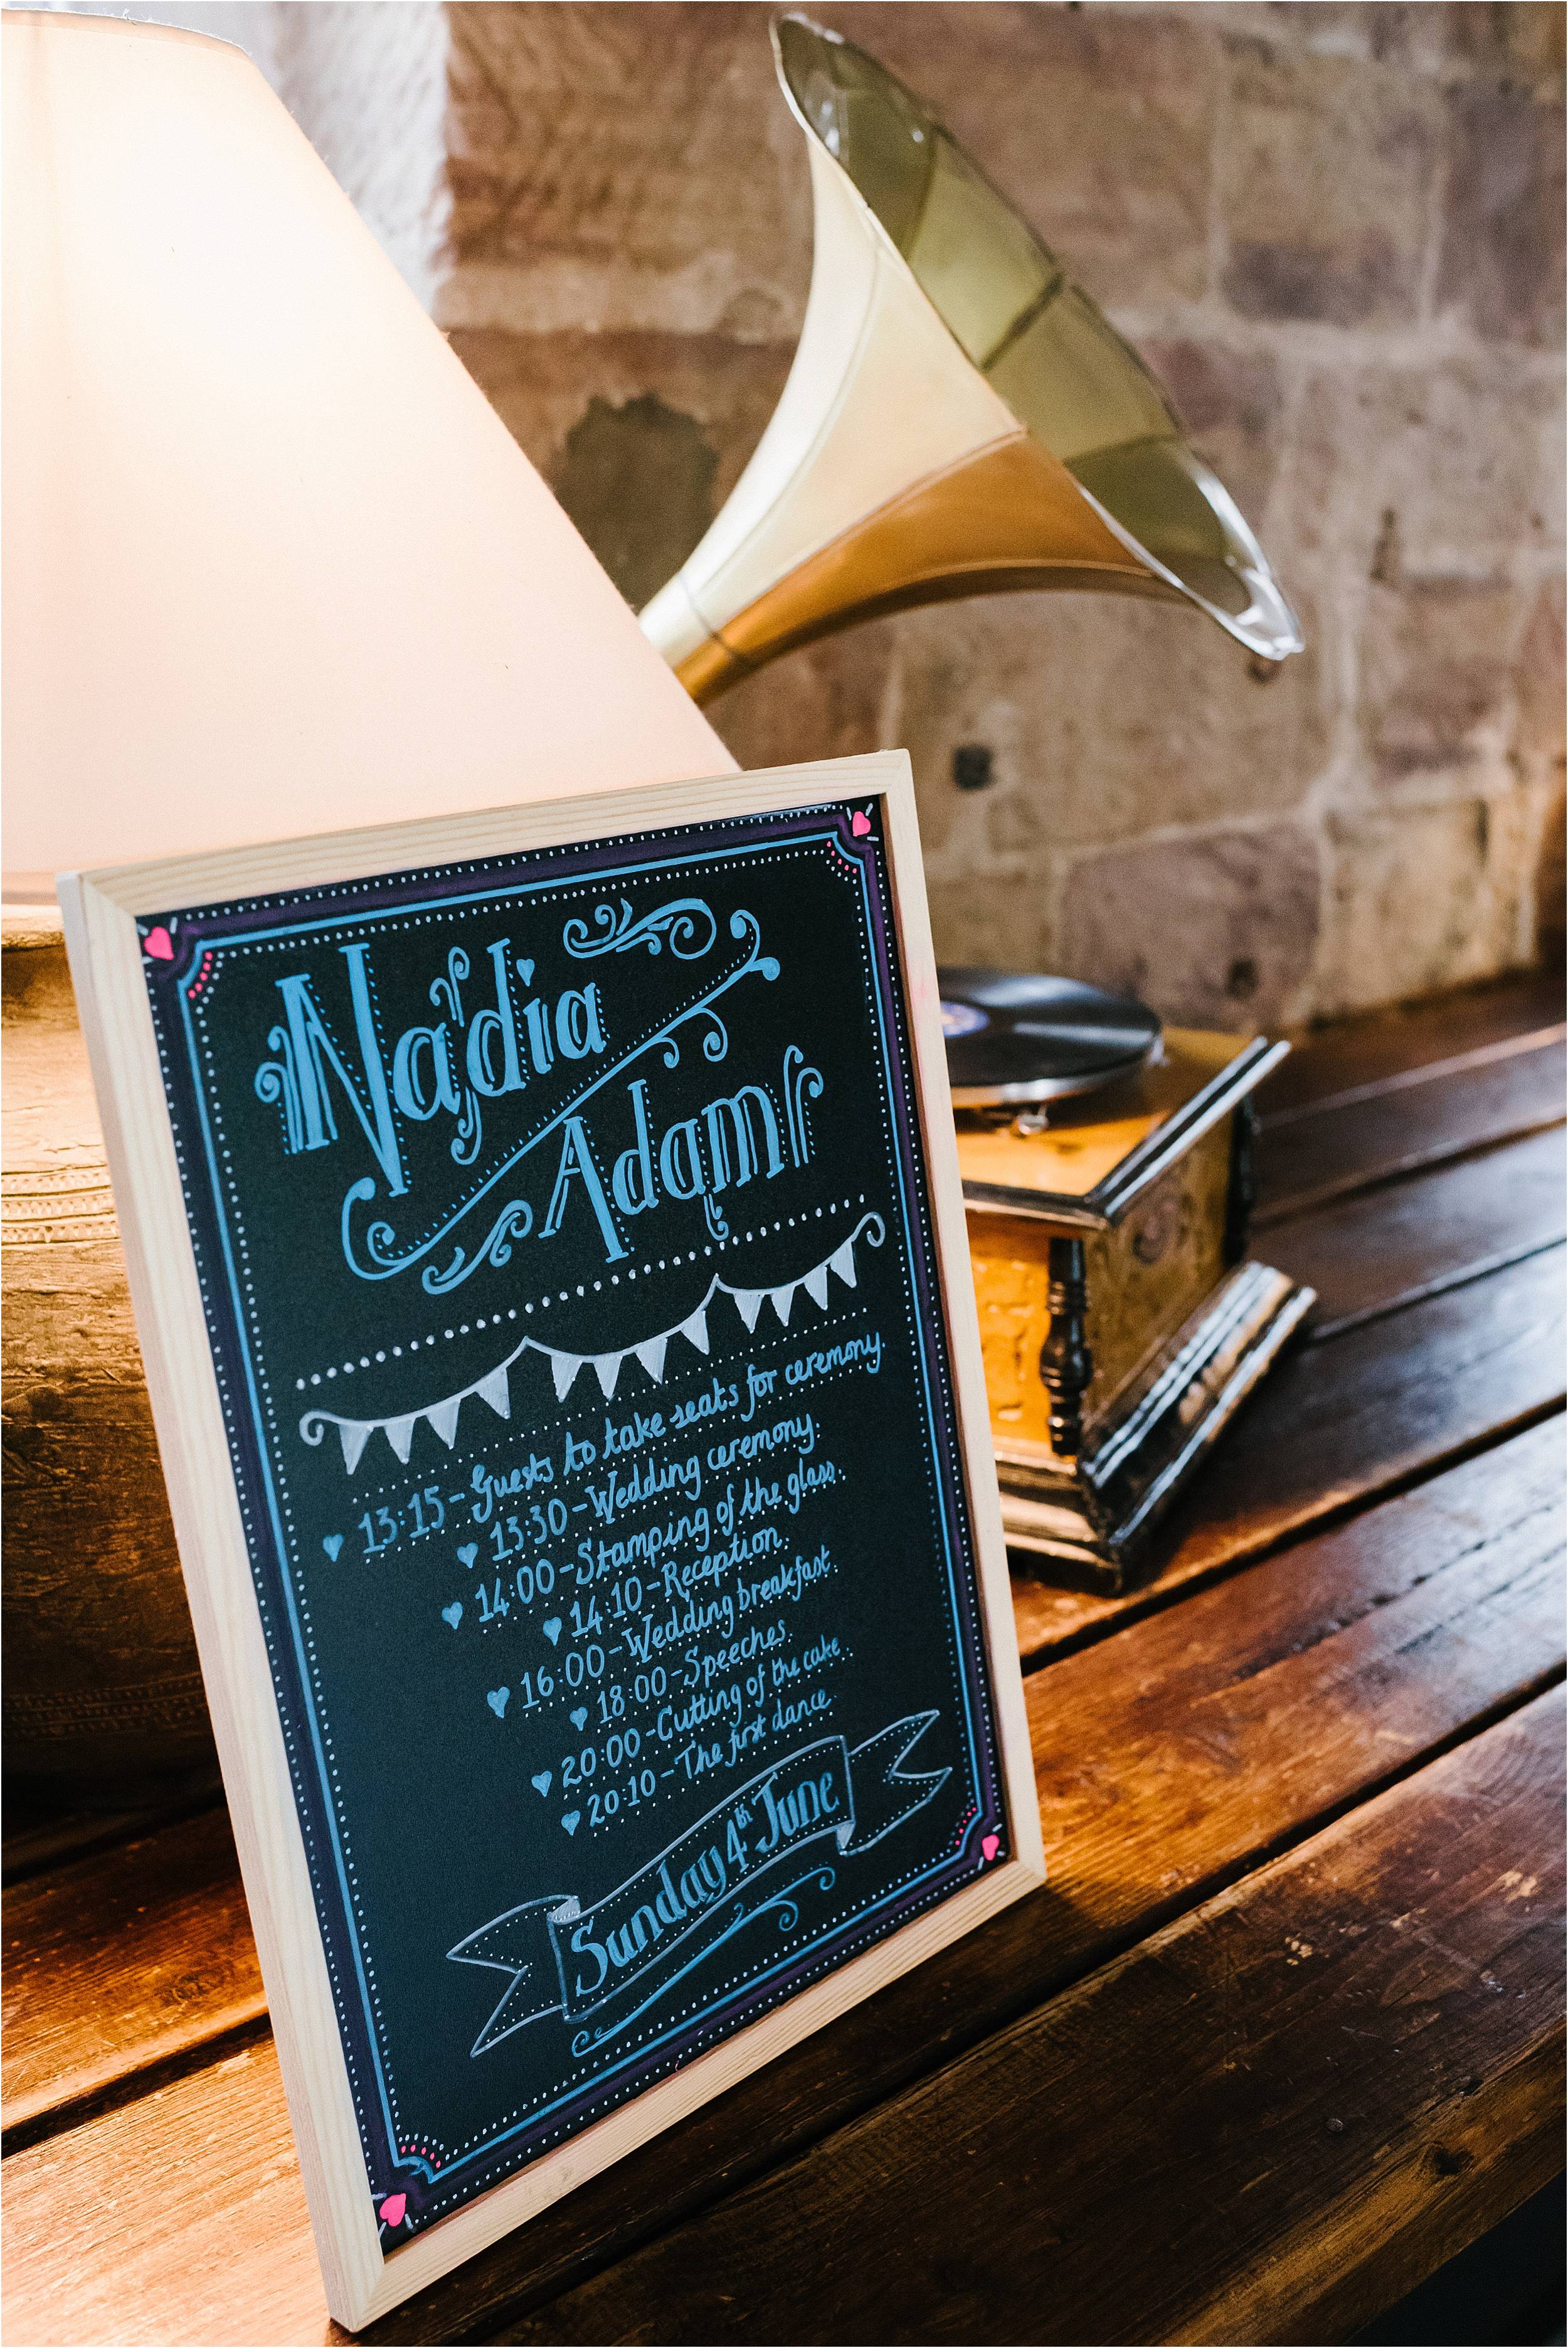 Nadia
Adam
13:15 - Guests to take seats for ceremony.
13:30 - Wedding ceremony.
14:00 - Stamping of the glass.
14:10 - Reception.
16:00 - Wedding breakfast.
18:00 - Speeches.
20:00 - Cutting of the cake.
20:10 - The first dance.
Sunday 4th June